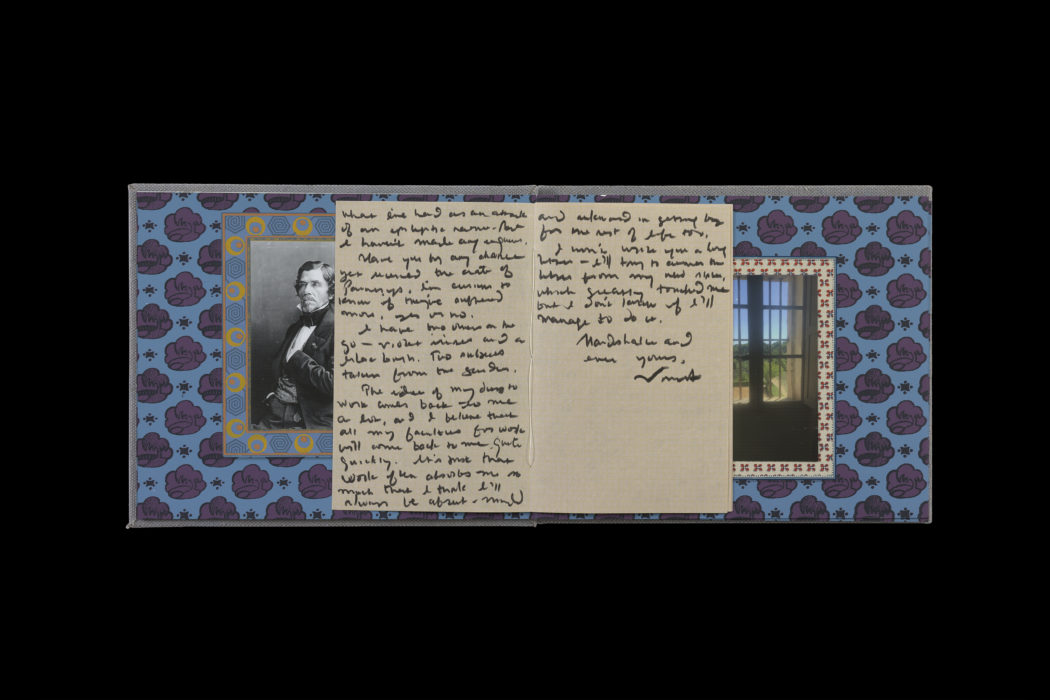 what I've had as an attack
of an epileptic nature. But
I haven't made any enquiries.
Have you by any chance
yet received the crate of
paintings, I'm curious to
know if they've suffered
more, yes or no.
I have two others on the
go – violet irises and a
lilac bush. Two subjects
taken from the garden.
The idea of my duty to
work comes back to me
a lot, and I believe that
all my faculties for work
will come back to me quite
quickly. It's just that
work often absorbs me so
much that I think I'll
always be absent-minded
and awkward in getting by
for the rest of life too.
I won't write you a long
letter – I'll try to answer the
letter from my new sister,
which greatly touched me
but I don't know if I'll
manage to do it.
Handshake and
ever yours,
Vincent